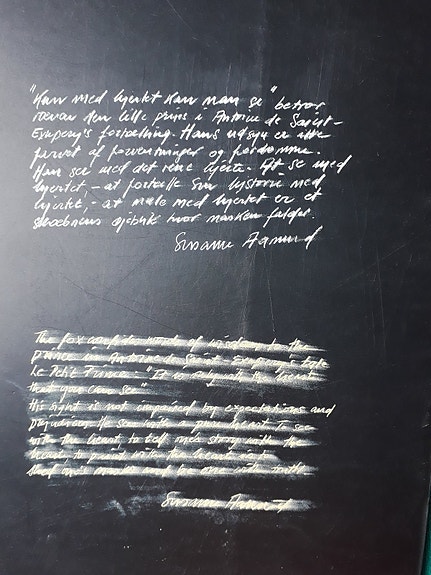 "Kun med hjertet kan man se" betror
ræven den lille prins i Antoine de Saint-
Exupery's fortælling. Hans udsyn er ikke
farvet af forventninger og fordomme.
Han ser med det rene hjerte. At se med
hjertet, - at fortælle sin historie med
hjertet, - at male med hjertet er et
skæbnens øjeblik hvor masken falder.
Susanne Aamund
The fox confides words of wisdom to the
prince in Antoine de Saint Exupery's tale
Le Petit Prince "It is only with the heart
that you can se"
His sight is not impaired by expectations and
prejudices. He sees with a pure heart. To see
with the heart, to tell ones story with the
heart, to paint with the heart is
Susanne Aamund